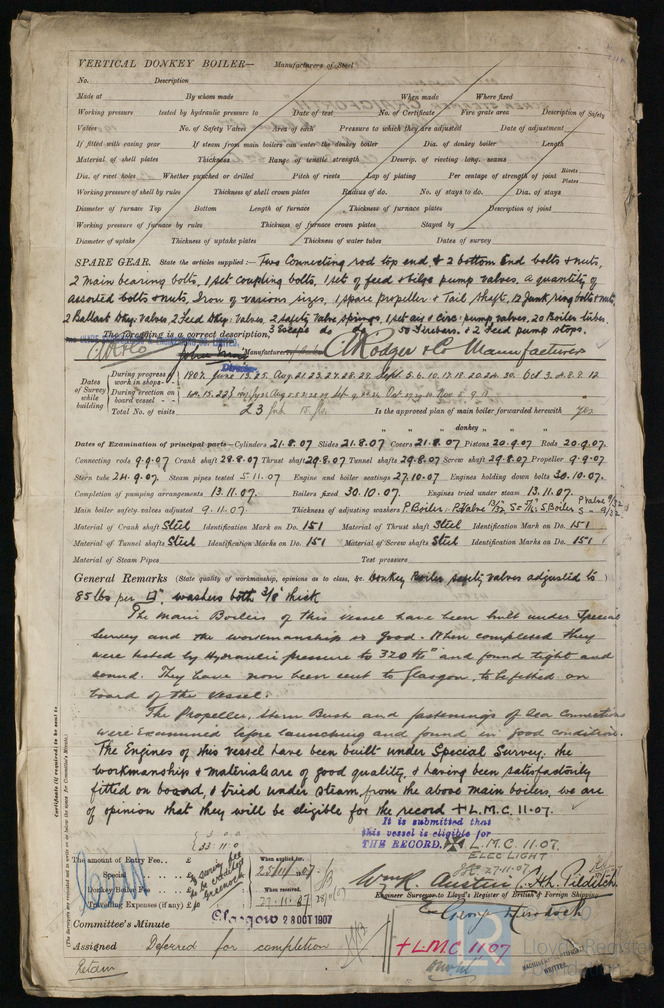 VERTICAL DONKEY BOILER— Manufacturers of Steel
No. Description
Made at By whom made When made Where fixed
Working pressure tested by hydraulic pressure to Date of test No. of Certificate Fire grate area Description of Safety
Valves No. of Safety Valves Area of each Pressure to which they are adjusted Date of adjustment
If fitted with easing gear If steam from main boilers can enter the donkey boiler Dia. of donkey boiler Length
Material of shell plates Thickness Range of tensile strength Descrip. of riveting long. seams
Dia. of rivet holes Whether punched or drilled Pitch of rivets Lap of plating Per centage of strength of joint Rivets Plates
Working pressure of shell by rules Thickness of shell crown plates Radius of do. No. of stays to do. Dia. of stays
Diameter of furnace Top Bottom Length of furnace Thickness of furnace plates Description of joint
Working pressure of furnace by rules Thickness of furnace crown plates Stayed by
Diameter of uptake Thickness of uptake plates Thickness of water tubes Dates of survey
SPARE GEAR. State the articles supplied:— Two Connecting rod top end, & 2 bottom End bolts & nuts,
2 main bearing bolts, 1 set coupling bolts, 1 set of feed & bilge pump valves. a quantity of
assorted bolts & nuts, Iron of various sizes, 1 spare propeller & Tail shaft, 12 Junk ring bolts & nuts,
2 Ballast pump valves. 2 Feed pump valves. 2 safety valve springs. 1 set air & circ. pump valves. 20 Boiler tubes.
3 Escape do do 50 Firebars. & 2 Feed pump stops.
The foregoing is a correct description,
Director Manufacturer. A Rodger & Co Manufacturers
Dates of Survey while building
During progress of work in shops— 1907. June 13.25. Aug 21.23.27.28.29. Sept. 5.6.10.17.18.20.24.30. Oct 3.4.8.9.12
During erection on board vessel—
Total No. of visits 23 Is the approved plan of main boiler forwarded herewith yes
" " " donkey " " "
Dates of Examination of principal parts—Cylinders 21.8.07 Slides 21.8.07 Covers 21.8.07 Pistons 20.9.07 Rods 20.9.07.
Connecting rods 9.9.07 Crank shaft 28.8.07 Thrust shaft 29.8.07 Tunnel shafts 29.8.07 Screw shaft 29.8.07 Propeller 9.9.07
Stern tube 24.9.07. Steam pipes tested 5.11.07 Engine and boiler seatings 27.10.07 Engines holding down bolts 30.10.07.
Completion of pumping arrangements 13.11.07. Boilers fixed 30.10.07. Engines tried under steam 13.11.07.
Main boiler safety valves adjusted 9.11.07. Thickness of adjusting washers
Material of Crank shaft Steel Identification Mark on Do. 151 Material of Thrust shaft Steel Identification Mark on Do. 151
Material of Tunnel shafts Steel Identification Marks on Do. 151 Material of Screw shafts Steel Identification Marks on Do. 151
Material of Steam Pipes Test pressure
General Remarks (State quality of workmanship, opinions as to class, &c. Donkey Boiler safety valves adjusted to
85 lbs per □". washers both 3/8" thick
The Main Boilers of this vessel have been built under Special
Survey and the workmanship is good. When completed they
were tested by Hydraulic pressure to 320 lbs and found tight and
sound. They have now been sent to Glasgow, to be fitted on
board of the vessel.
The Propeller, Stern Bush and fastenings of Sea Connections
were Examined before launching and found in good condition.
The Engines of this vessel have been built under Special Survey. the
workmanship & materials are of good quality, & having been satisfactorily
fitted on board, & tried under steam, from the above main boilers, we are
of opinion that they will be eligible for the record + L.M.C. 11.07.
It is submitted that
this vessel is eligible for
THE RECORD. L.M.C. 11.07.
ELEC LIGHT
27.11.07
The amount of Entry Fee.. £
Special .. £
Donkey Boiler Fee .. £
Travelling Expenses (if any) £
When applied for,
25/11/07
When received,
27.11.07
Wm R. Austin C. J. H. Pilditch.
Engineer Surveyor to Lloyd's Register of British & Foreign Shipping
Committee's Minute Glasgow 28 OCT 1907
Assigned Deferred for completion
+ L.M.C. 11.07
Retain
MACHINERY CERTIFICATE WRITTEN
Certificate (if required) to be sent to
(The Surveyors are requested not to write on or below the space for Committee's Minute.)
© 2020
Lloyd's Register
Foundation